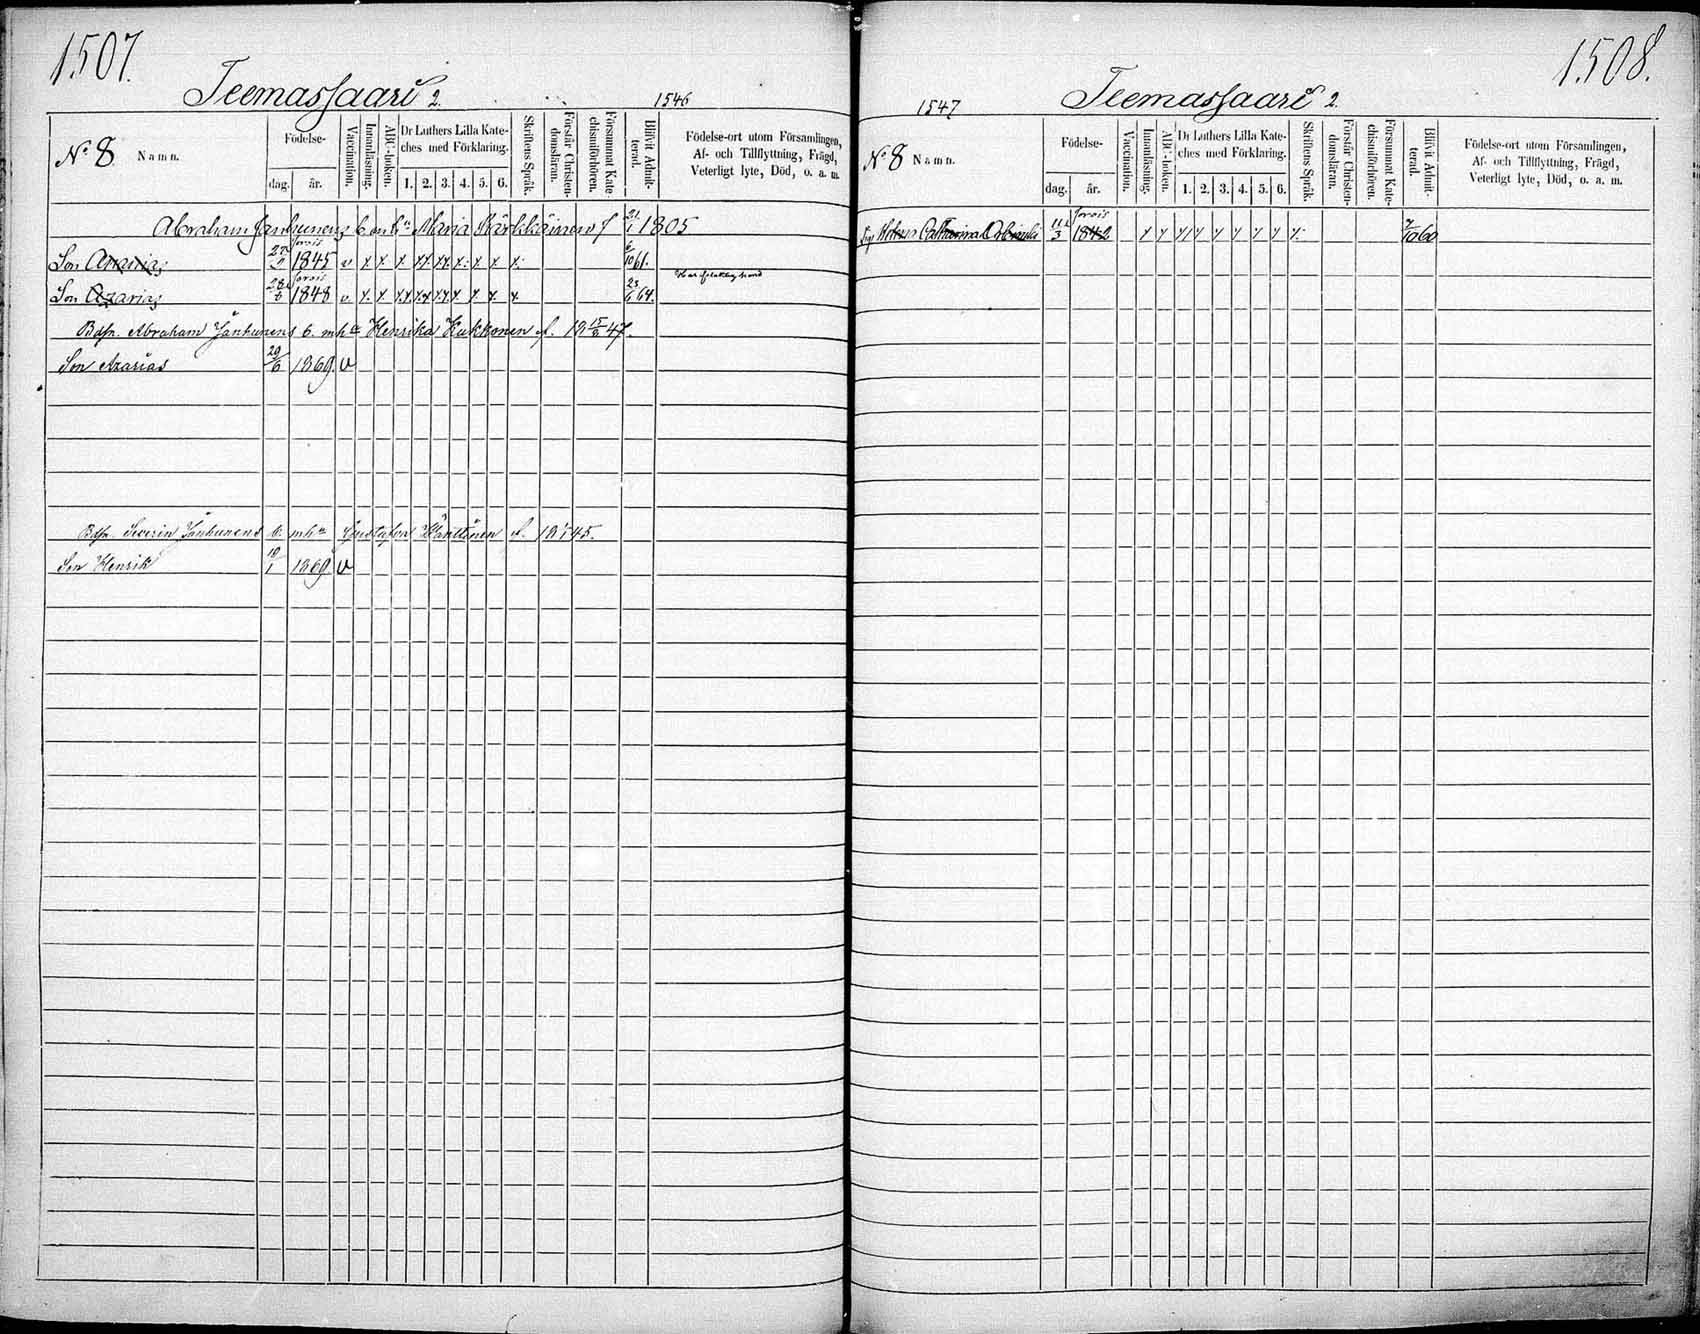 1507.
Teemassaari 2.
1546
N:o 8 Namn.
Födelse-
dag. år.
Vaccination.
Innanläsning.
ABC-boken.
Dr Luthers Lilla Kate-
ches med Förklaring.
1. 2. 3. 4. 5. 6.
Skriftens Språk.
Förstår Christen-
domsläran.
Försummat Kate-
chismiförhören.
Blifvit Admit-
terad.
Födelse-ort utom Församlingen,
Af- och Tillflyttning, Frägd,
Veterligt lyte, Död, o. a. m.
Abraham Janhunens b. m. h:u Maria Kärkkäinen f 21/1 1805
Son Ananias 1845 v x x x xx xx x x x x 6/10 61.
Son Azarias 28/8 1848 v. x. x xx xx xx x x x x 23/6 64.
Bdsn. Abraham Janhunens b. m h:u Henrika Kukkonen f. 18 15/8 47.
Son Azarias 29/6 1869. v
Bdsn. Severin Janhunens b. m h:u Gustafva f. 18 45.
Son Henrik 19/1 1869 v
1508.
Teemassaari 2.
1547
N:o 8 Namn.
Födelse-
dag. år.
Vaccination.
Innanläsning.
ABC-boken.
Dr Luthers Lilla Kate-
ches med Förklaring.
1. 2. 3. 4. 5. 6.
Skriftens Språk.
Förstår Christen-
domsläran.
Försummat Kate-
chismiförhören.
Blifvit Admit-
terad.
Födelse-ort utom Församlingen,
Af- och Tillflyttning, Frägd,
Veterligt lyte, Död, o. a. m.
Catharina 11/3 1842 x x xx x x x x x x 7/10 60